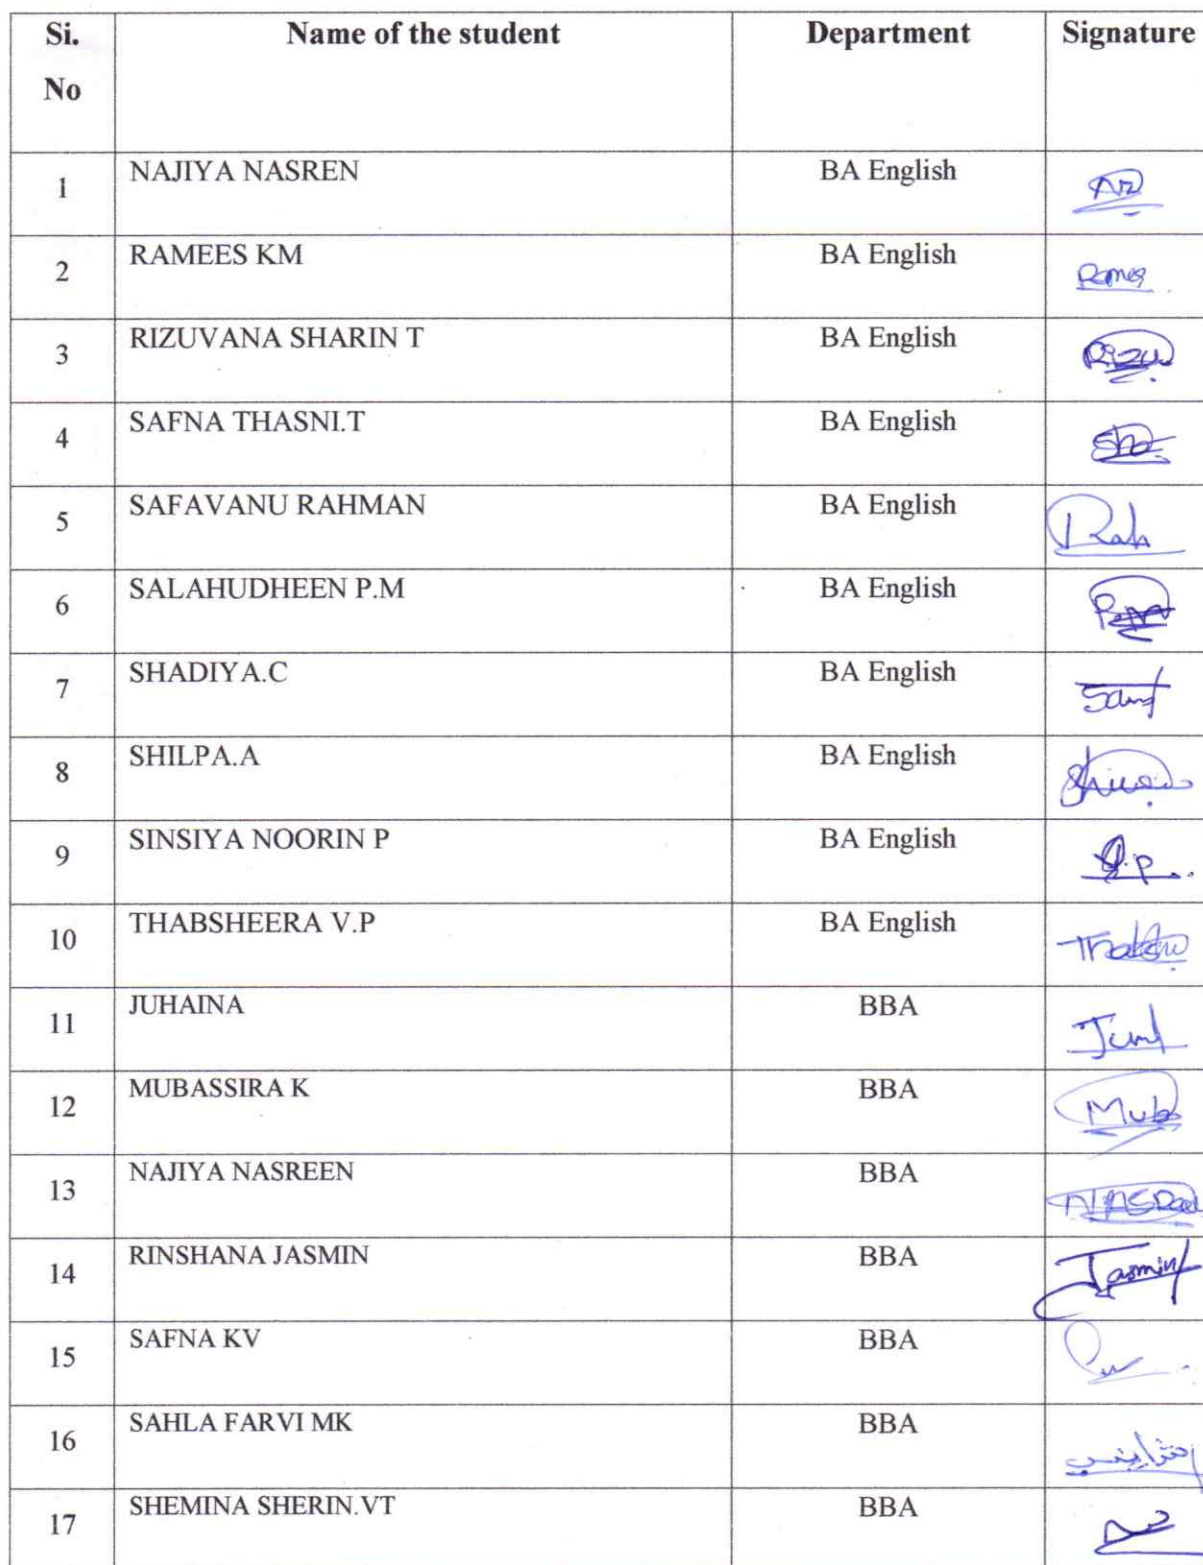 Si. Name of the student Department Signature
No
1 NAJIYA NASREN BA English
2 RAMEES KM BA English
3 RIZUVANA SHARIN T BA English Rizu
4 SAFNA THASNI.T BA English
5 SAFAVANU RAHMAN BA English Rah
6 SALAHUDHEEN P.M BA English
7 SHADIYA.C BA English
8 SHILPA.A BA English
9 SINSIYA NOORIN P BA English
10 THABSHEERA V.P BA English
11 JUHAINA BBA
12 MUBASSIRA K BBA Mub
13 NAJIYA NASREEN BBA
14 RINSHANA JASMIN BBA Jasmin
15 SAFNA KV BBA
16 SAHLA FARVI MK BBA
17 SHEMINA SHERIN.VT BBA